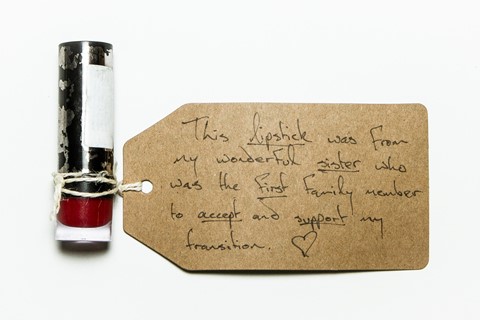 This lipstick was from
my wonderful sister who
was the first family member
to accept and support my
transition. ♡